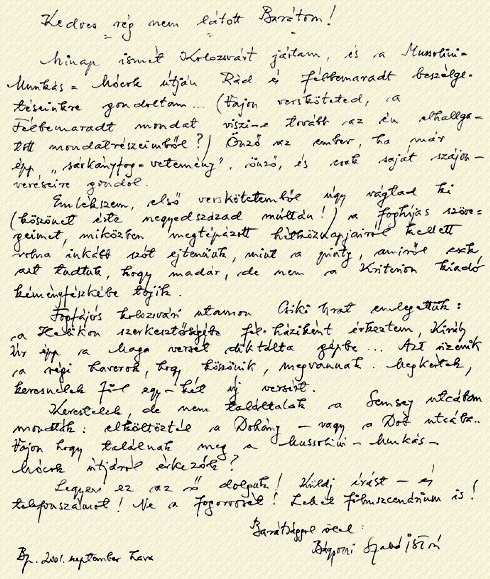 Kedves rég nem látott Barátom!
Minap ismét Kolozsvárt jártam, és a Mussolini-
Munkás-Mócok útján Rád és félbemaradt beszélge-
téseinkre gondoltam... (Vajon versköteted, a
Félbemaradt mondat viszi-e tovább az én elhallga-
tott mondatrészeimből?) Önző az ember, ha már
épp „sárkányfog-vetemény", önző, és csak saját
veréseire gondol.
Emlékszem, első verskötetemből úgy vágtad ki
(köszönet érte negyedszázad múltán!) a foghíjas szöve-
geimet, miközben megtépázott hétköznapjainkról kellett
volna inkább szót ejtenünk, mint a amiről csak
azt tudtuk, hogy madár, de nem a Kriterion kiadó
kéményfészkébe tojik.
Fogfájós kolozsvári utamon Csiki urat emlegettük:
a Helikon szerkesztőségébe érkeztem, Király
úr épp a Maga versét diktálta gépbe... Azt üzenik
a régi haverok, hogy köszönik, megvannak. Megkértek,
keresnélek föl egy-két új versért.
Kerestelek, de nem találtalak a Semsey utcában
mondták: elköltöztél a Dohány - vagy a Dob utcába..
Vajon hogy találnak meg a Mussolini-Munkás-
Mócok útjáról érkezők?
Legyen ez az ő dolguk! Küldj írást - és
telefonszámot! Ne a fogorvosét! Lehet filmszcenárium is!
Barátsággal ölel:
Bágyoni Szabó István
Bp. 2001. szeptember hava